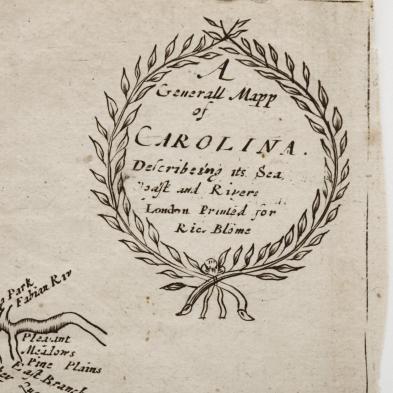 A
Generall Mapp
of
CAROLINA.
Describeing its Sea
Coast and Rivers
London Printed for
Ric. Blome
Park
Fabian Riv
Pleasant
Meadows
Pine Plains
East Branch